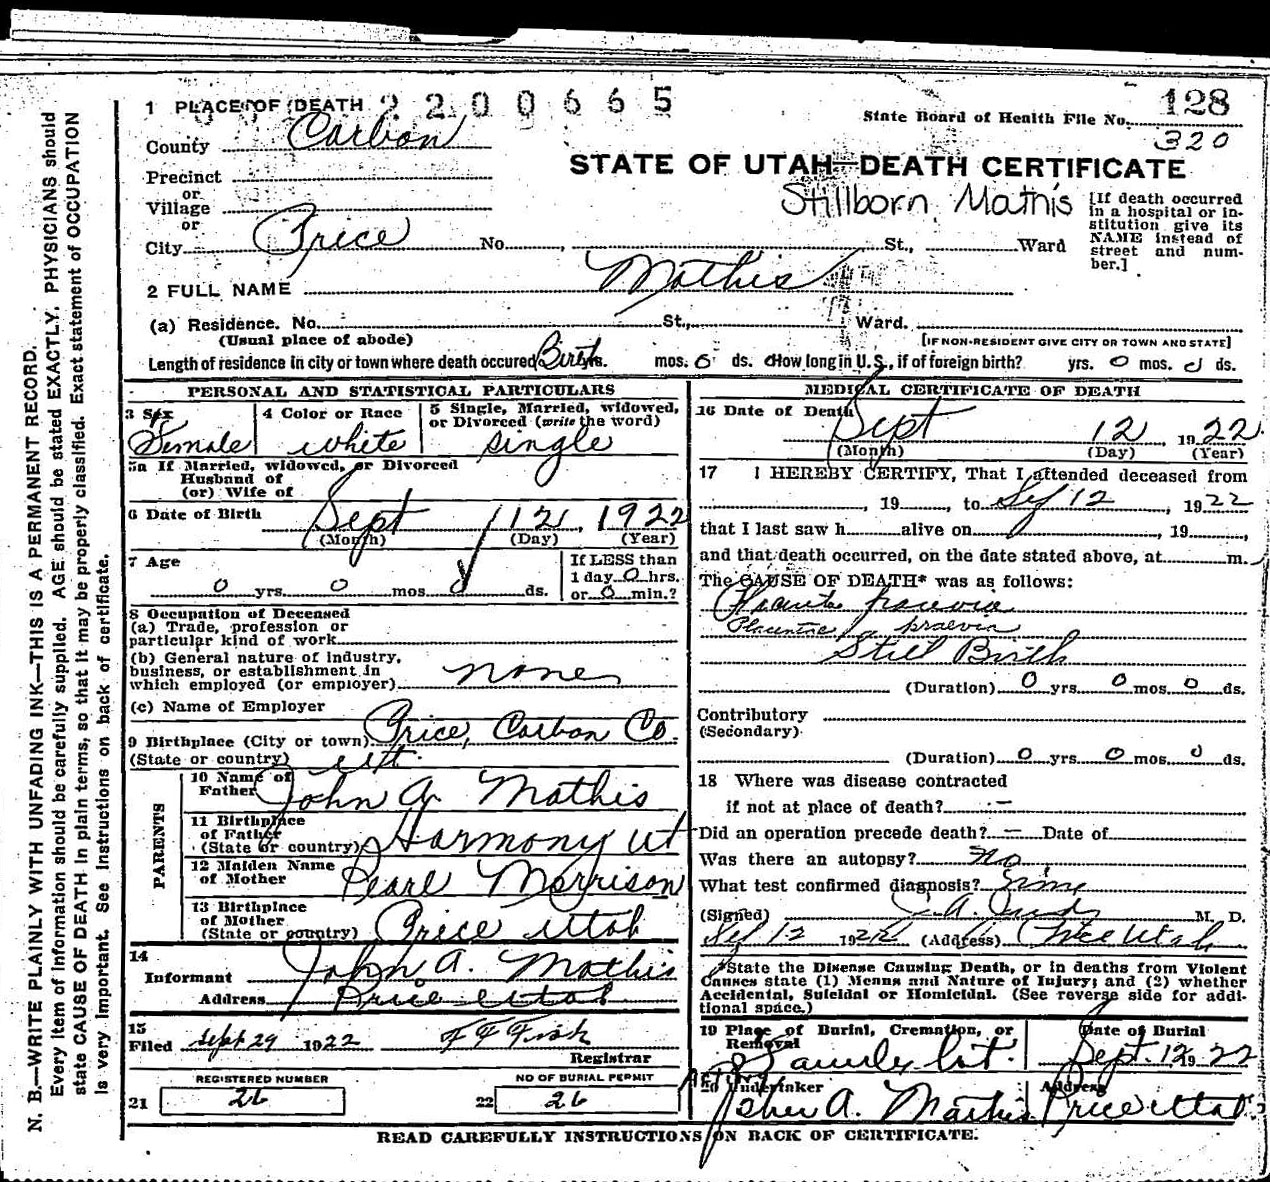 2200665
1 PLACE OF DEATH
State Board of Health File No. 128
320
County Carbon
STATE OF UTAH—DEATH CERTIFICATE
Precinct
or
Village
or
Stillborn Mathis
[If death occurred in a hospital or institution give its NAME instead of street and number.]
City Price No. , St., Ward
2 FULL NAME Mathis
(a) Residence. No. St., Ward.
(Usual place of abode) [IF NON-RESIDENT GIVE CITY OR TOWN AND STATE]
Length of residence in city or town where death occured Birth yrs. mos. 0 ds. 0 How long in U. S., if of foreign birth? yrs. 0 mos. 0 ds.
PERSONAL AND STATISTICAL PARTICULARS
3 Sex Female
4 Color or Race white
5 Single, Married, widowed, or Divorced (write the word) single
5a If Married, widowed, or Divorced
Husband of
(or) Wife of
6 Date of Birth Sept 12, 1922
(Month) (Day) (Year)
7 Age 0 yrs. 0 mos. 0 ds.
If LESS than
1 day 0 hrs.
or 0 min.?
8 Occupation of Deceased
(a) Trade, profession or
particular kind of work
(b) General nature of industry,
business, or establishment in
which employed (or employer) none
(c) Name of Employer
9 Birthplace (City or town) Price, Carbon Co.
(State or country) Ut.
PARENTS
10 Name of Father John A Mathis
11 Birthplace of Father (State or country) Harmony Ut
12 Maiden Name of Mother Pearl Morrison
13 Birthplace of Mother (State or country) Price Utah
14
Informant John A. Mathis
Address Price Utah
15
Filed Sept 29 1922
Registrar
REGISTERED NUMBER
21 26
NO OF BURIAL PERMIT
22 26
MEDICAL CERTIFICATE OF DEATH
16 Date of Death Sept 12, 1922
(Month) (Day) (Year)
17 I HEREBY CERTIFY, That I attended deceased from
, 19 , to Sep 12, 1922
that I last saw h alive on , 19 ,
and that death occurred, on the date stated above, at m.
The CAUSE OF DEATH* was as follows:
Placenta praevia
Placenta praevia
Still Birth
(Duration) 0 yrs. 0 mos. 0 ds.
Contributory
(Secondary)
(Duration) 0 yrs. 0 mos. 0 ds.
18 Where was disease contracted
if not at place of death? —
Did an operation precede death? — Date of
Was there an autopsy? No
What test confirmed diagnosis?
(Signed) M. D.
Sep 12 1922 (Address) Price Utah
*State the Disease Causing Death, or in deaths from Violent
Causes state (1) Means and Nature of Injury; and (2) whether
Accidental, Suicidal or Homicidal. (See reverse side for addi-
tional space.)
19 Place of Burial, Cremation, or Removal
Date of Burial
Sept. 12, 1922
ACTING
20 Undertaker
John A. Mathis
Address
Price Utah
READ CAREFULLY INSTRUCTIONS ON BACK OF CERTIFICATE.
N. B.—WRITE PLAINLY WITH UNFADING INK—THIS IS A PERMANENT RECORD.
Every item of information should be carefully supplied. AGE should be stated EXACTLY. PHYSICIANS should
state CAUSE OF DEATH in plain terms, so that it may be properly classified. Exact statement of OCCUPATION
is very important. See instructions on back of certificate.